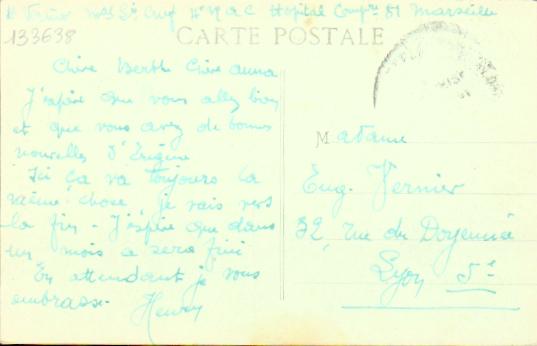 Hôpital Comp^re 81 Marseille
133638
CARTE POSTALE
Chère Berthe Chère Anna
J'espère que vous allez bien
et que vous avez de bonnes
nouvelles d'Eugène
Ici ça va toujours la
même chose, je vais vers
la fin. J'espère que dans
un mois ça sera fini
En attendant je vous
embrasse.
Henry
Madame
Eug. Vernier
32, rue du Doyenné
Lyon 5e